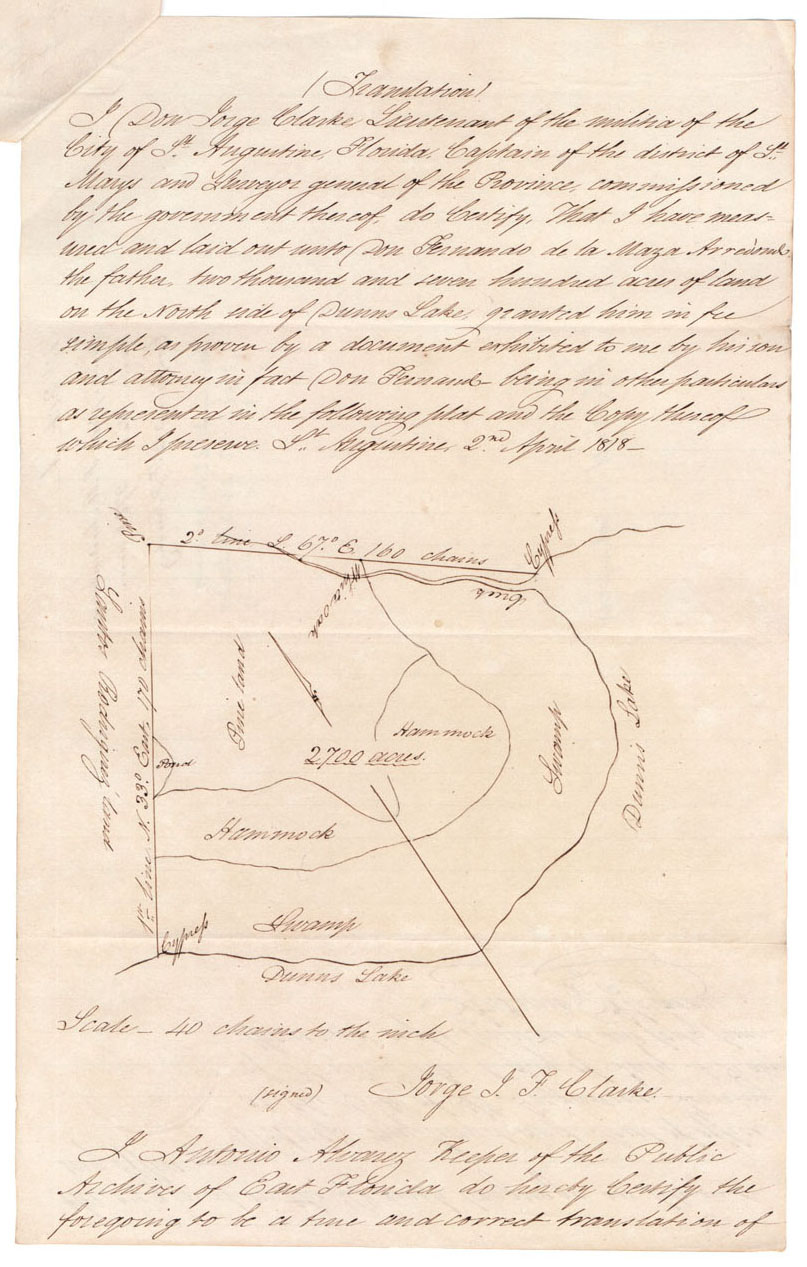 (Translation)
I Don Jorge Clarke, Lieutenant of the militia of the
City of St. Augustine, Florida, Captain of the district of St.
Marys and Surveyor general of the Province, commissioned
by the government thereof, do Certify, That I have meas-
ured and laid out unto Don Fernando de la Maza Arredondo,
the father, two thousand and seven hundred acres of land
on the North side of Dunns Lake, granted him in fee
simple, as proven by a document exhibited to me by his son
and attorney in fact Don Fernando – being in other particulars
as represented in the following plat and the Copy thereof
which I preserve. St. Augustine, 2nd April 1818 –
Pine
2d line S. 67° E. 160 chains
Cypress
Live oak
Creek
Rodriguez' land
1st line N. 33° East. 170 chains
Pine land
Hammock
Swamp
Dunns Lake
2700 acres.
Pond
Hammock
Swamp
Cypress
Dunns Lake
Scale – 40 chains to the inch
(signed) Jorge J. F. Clarke –
I Antonio Alvarez Keeper of the Public
Archives of East Florida do hereby Certify the
foregoing to be a true and correct translation of